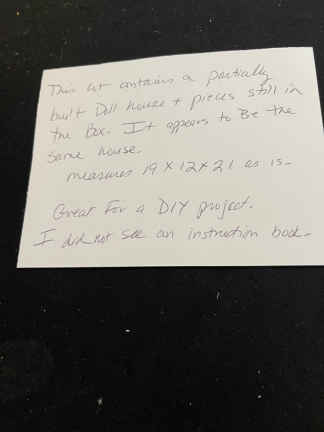 This lot contains a partially
built Doll house + pieces still in
the Box. It appears to Be the
same house.
measures 19 x 12 x 21 as is-
Great For a DIY project.
I did not see an instruction book-